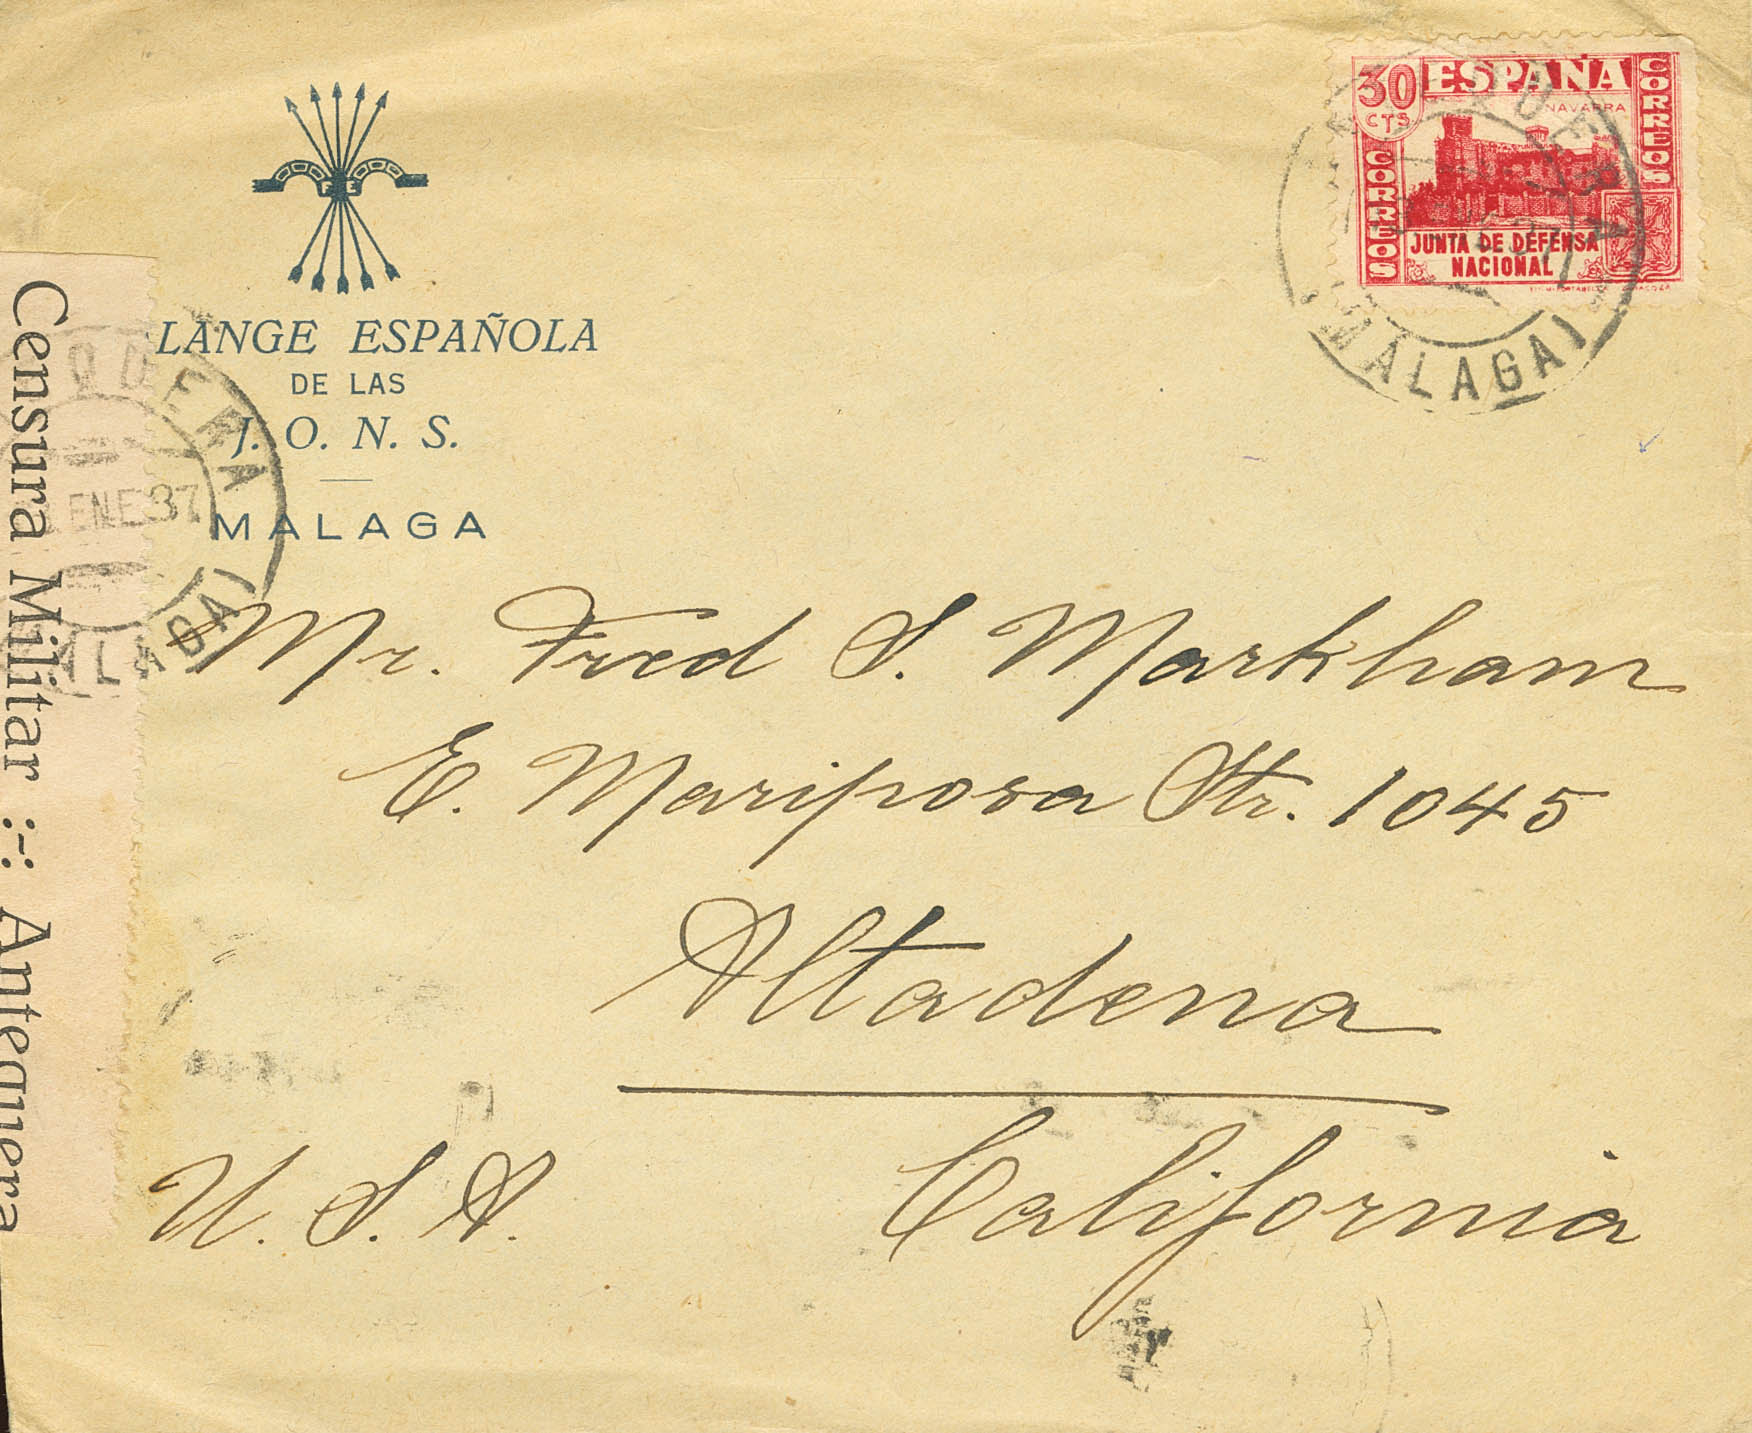 30
CTS
ESPAÑA
NAVARRA
CORREOS
CORREOS
JUNTA DE DEFENSA
NACIONAL
(MALAGA)
F E
LANGE ESPAÑOLA
DE LAS
J. O. N. S.
MALAGA
ENE 37
Censura Militar :-: Antequera
Mr. Fred S. Markham
E. Mariposa Str. 1045
Altadena
California
U. S. A.